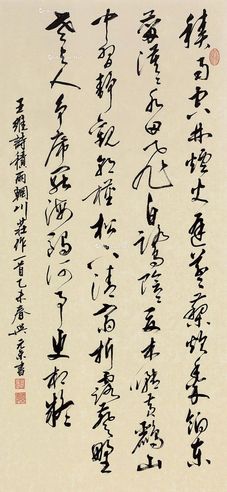 積雨空林煙火遲蒸藜炊黍餉東
菑漠〻水田飛白鷺陰〻夏木囀黃鸝山
中習靜觀朝槿松下清齋折露葵野
老与人爭席罷海鷗何事更相疑
王維詩積雨輞川莊作一首乙未春書